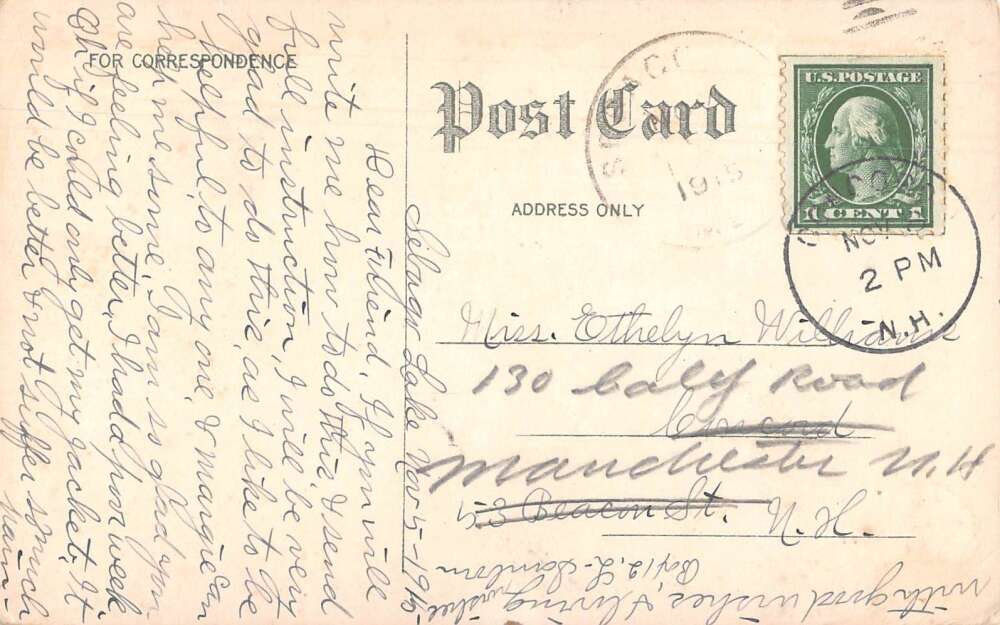 FOR CORRESPONDENCE
Post Card
ADDRESS ONLY
U.S. POSTAGE
1 CENT 1
1915
NOV
2 PM
N.H.
Miss. Ethelyn Williams
130 Calef Road
Concord
Manchester N.H
5 E Beacon St. N.H.
Sebago Lake Nov 5-1915
Dear Friend, If you will
write me how to do this & send
full instruction, I will be very
glad to do this, as I like to be
helpful, to any one, & Margie can
help me some, I am so glad you
are feeling better, I had a poor week
Oh if I could only get my jacket, It
would be better & not suffer so much
pain-
with good wishes, & loving wishes
Box 12, L- Sanborn